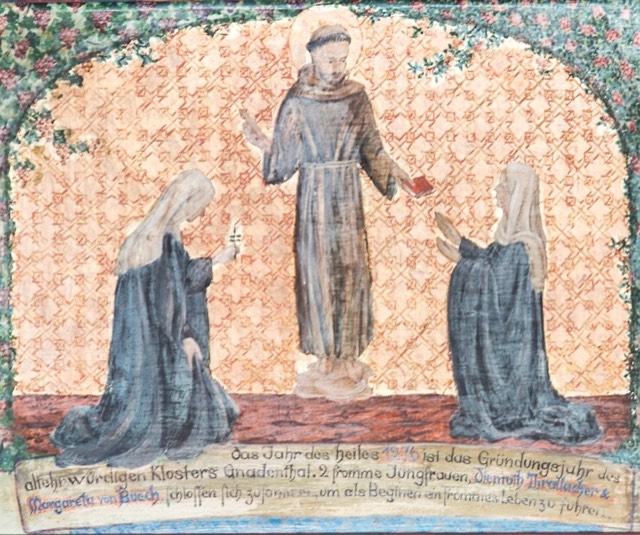 Das Jahr des heiles 1276 ist das Gründungsjahr des
altehrwürdigen Klosters Gnadenthal. 2 fromme Jungfrauen, Diemuth Thrailacher &
Margareta von Busch, schlossen sich zusammen, um als Beginen ein frommes Leben zu führen.